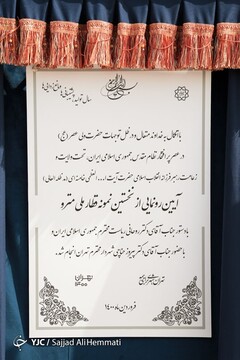 سال تولید، پشتیبانی‌ها و مانع‌زدایی‌ها
با اتکال به خداوند متعال و در ظل توجهات حضرت ولی عصر (عج)
در عصر پر افتخار نظام مقدس جمهوری اسلامی ایران، تحت ولایت و
زعامت رهبر فرزانه انقلاب اسلامی حضرت آیت‌ا... العظمی خامنه‌ای (مدظله العالی)
آیین رونمایی از نخستین نمونه قطار ملی مترو
با دستور جناب آقای دکتر روحانی ریاست محترم جمهوری اسلامی ایران و
با حضور جناب آقای دکتر پیروز حناچی شهردار محترم تهران انجام شد.
تهران
۱۴۰۰
فروردین ماه ۱۴۰۰
YJC / Sajjad Ali Hemmati